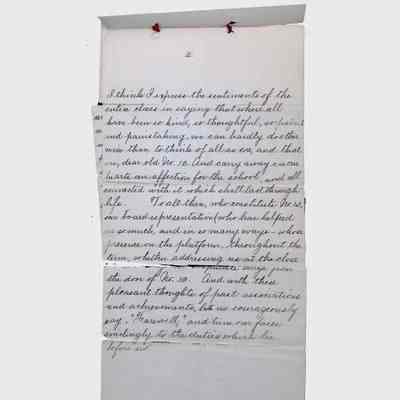 2
I think I express the sentiments of the
entire class in saying that where all
have been so kind, so thoughtful, so patient
and painstaking, we can hardly do other
wise than to think of all as one, and that
one, dear old No. 10. And carry away in our
hearts an affection for the school, and all
connected with it which shall last through
life. To all then, who constitute No. 10,
our board representative (who has helped
us so much, and in so many ways - whose
presence on the platform, throughout the
term, whether addressing us at the close
ways upon
the door of No. 10. And with these
pleasant thoughts of past associations
and achievements, let us courageously
say - "Farewell," and turn our faces
smilingly to the duties which lie
before us.